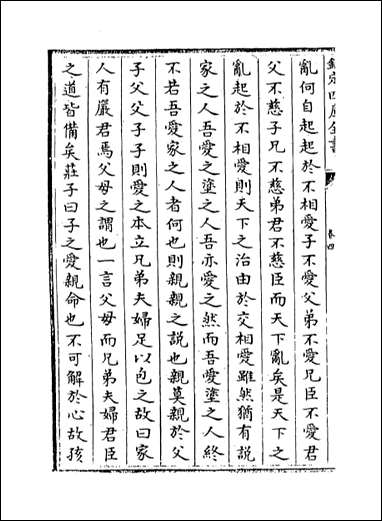 欽定四庫全書
卷四
亂何自起起於不相愛子不愛父弟不愛兄臣不愛君
父不慈子兄不慈弟君不慈臣而天下亂矣是天下之
亂起於不相愛則天下之治由於交相愛雖然猶有説
家之人吾愛之塗之人吾亦愛之然而吾愛塗之人終
不若吾愛家之人者何也則親親之説也親莫親於父
子父父子子則愛之本立兄弟夫婦足以包之故曰家
人有嚴君焉父母之謂也一言父母而兄弟夫婦君臣
之道皆備矣莊子曰子之愛親命也不可解於心故孩